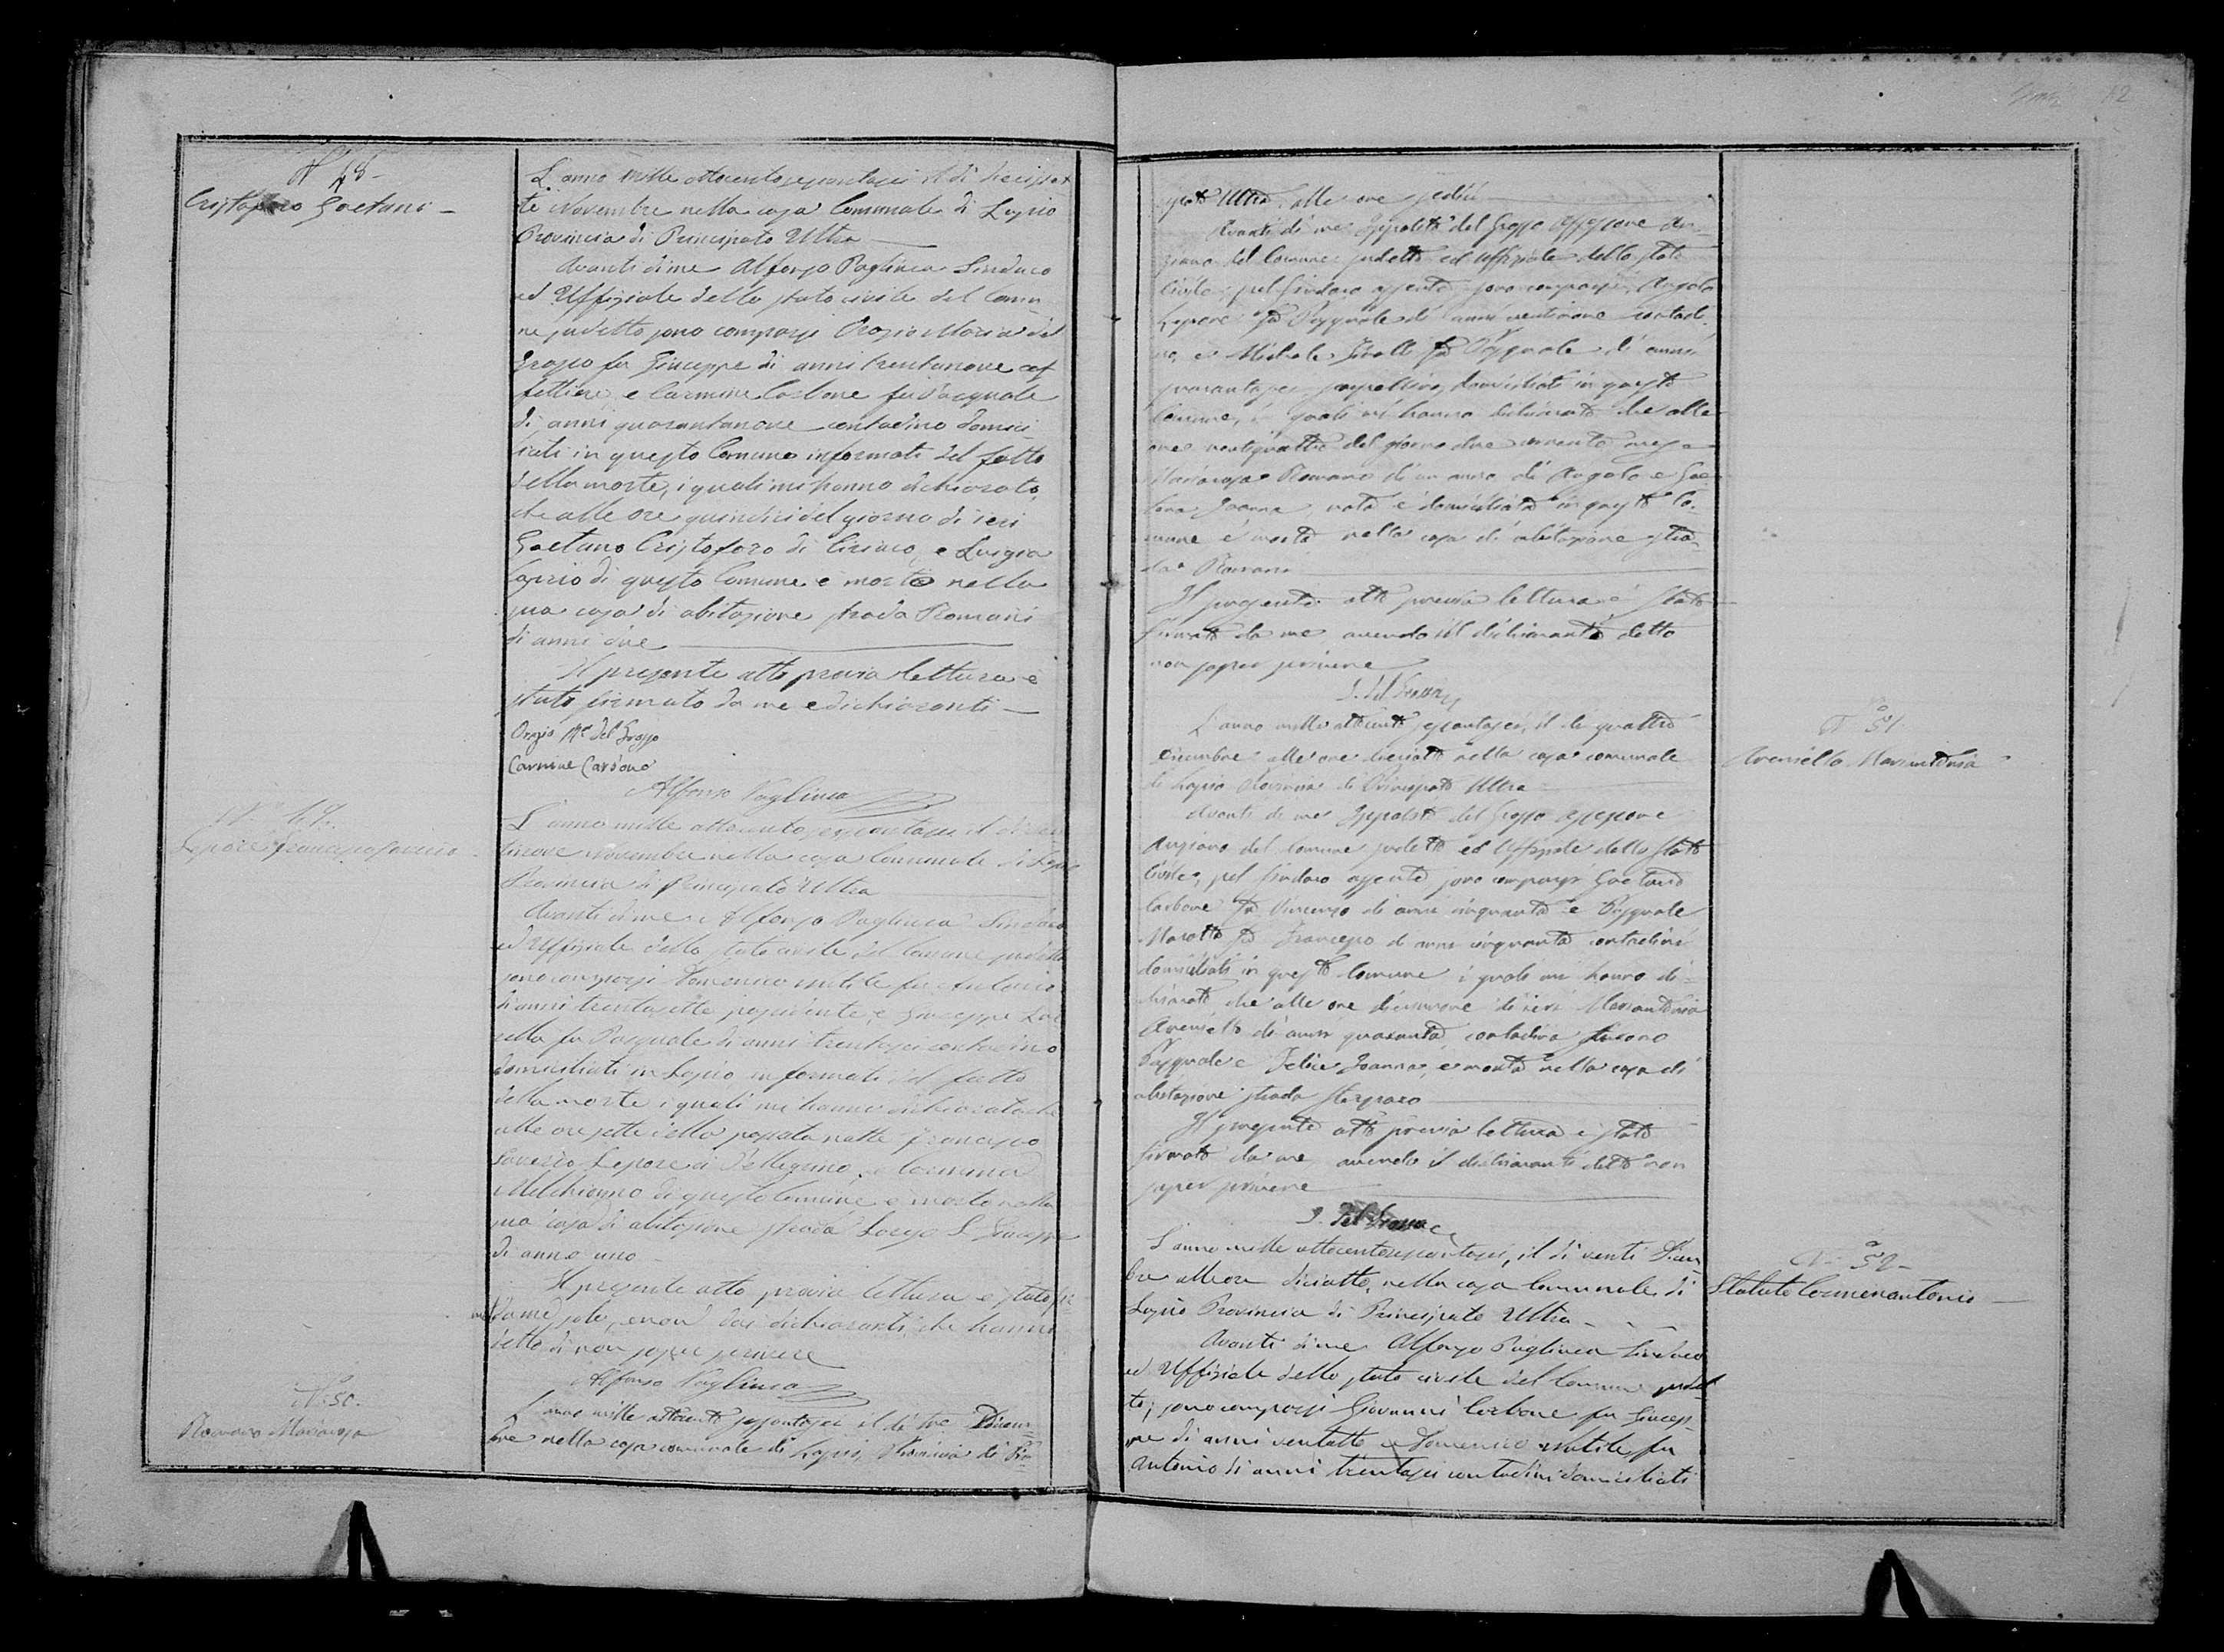 N° 48-
Cristoforo Gaetano -
L'anno mille ottocentosessantasei il dì diciset
te Novembre nella casa Comunale di Lapio
Provincia di Principato Ultra
Avanti di me Alfonso Pagliuca Sindaco
ed Uffiziale dello stato civile del Comu
ne sudetto sono comparsi Orazio Maria del
Grosso fu Giuseppe di anni trentanove caf
fettiere, e Carmine Carbone fu Pasquale
di anni quarantanove contadino domici
liati in questo Comune informati del fatto
della morte, i quali mi hanno dichiarato,
che alle ore quindici del giorno di ieri
Gaetano Cristoforo di Ciriaco, e Luigia
di questo Comune è morto nella
sua casa di abitazione strada Romani
di anni due
Il presente atto previa lettura è
stato firmato da me e dichiaranti -
Orazio Ma del Grosso
Carmine Carbone
Alfonso Pagliuca
N° 49.
Lepore Francescosaverio
L'anno mille ottocento sessantasei il dì
Novembre nella casa Comunale di Lapio
Provincia di Principato Ultra
Avanti di me Alfonso Pagliuca Sindaco
ed Uffiziale dello stato civile del Comune sudetto
sono comparsi Domenico Mutile fu Antonio
di anni trentasette possidente, e Giuseppe
fu Pasquale di anni trentasei contadino
domiciliati in Lapio informati del fatto
della morte i quali mi hanno dichiarato che
alle ore sette della passata notte Francesco
Saverio Lepore di Pellegrino, e Carmina
Melchionno di questo Comune è morto nella
sua casa di abitazione strada Largo S. Giuseppe
di anno uno -
Il presente atto previa lettura è stato
da me solo, e non dai dichiaranti che hanno
detto di non saper scrivere
Alfonso Pagliuca
N° 50.
Romano Mariarosa
L'anno mille ottocento sessantasei il dì tre Dicem
bre nella casa comunale di Lapio, Provincia di Prin
cipato Ultra, alle ore sedici
Avanti di me Ippolito del Grosso Assessore An
ziano del Comune sudetto ed Uffiziale dello stato
Civile, pel Sindaco assente sono comparsi, Angelo
Lepore fu Pasquale di anni ventinove contadi
no, e Michele fu Pasquale di anni
quarantasei domiciliati in questo
Comune, i quali mi hanno dichiarato che alle
ore ventiquattro del giorno due corrente mese
Mariarosa Romano di un anno di Angelo e Gae
tana Ioanna nata e domiciliata in questo Co
mune è morta nella casa di abitazione stra
da Romani
Il presente atto previa lettura è stato
firmato da me avendo i dichiaranti detto
non saper scrivere
I. del Grosso
N° 51.
Areniello Mariantonia
L'anno mille ottocento sessantasei, il dì quattro
Dicembre alle ore diciotto nella casa comunale
di Lapio Provincia di Principato Ultra
Avanti di me Ippolito del Grosso Assessore
Anziano del Comune sudetto ed Uffiziale dello Stato
Civile, pel Sindaco assente sono comparsi Gaetano
Carbone fu Vincenzo di anni cinquanta e Pasquale
Marotta fu Francesco di anni cinquanta contadini
domiciliati in questo Comune i quali mi hanno di
chiarato che alle ore diciannove di ieri Mariantonia
Areniello di anni quaranta contadina furono
Pasquale e Felice Ioanna, è morta nella casa di
abitazione strada
Il presente atto previa lettura è stato
firmato da me avendo i dichiaranti detto non
saper scrivere
I. del Grosso
N° 52-
Statuto Carminantonio -
L'anno mille ottocentosessantasei, il dì venti Dicem
bre alle ore diciotto, nella casa Comunale di
Lapio Provincia di Principato Ultra -
Avanti di me Alfonso Pagliuca Sindaco
ed Uffiziale dello stato civile del Comune sudet
to, sono comparsi Giovanni Carbone fu Giusep
pe di anni ventotto e Domenico Mutile fu
Antonio di anni trentasei contadini domiciliati